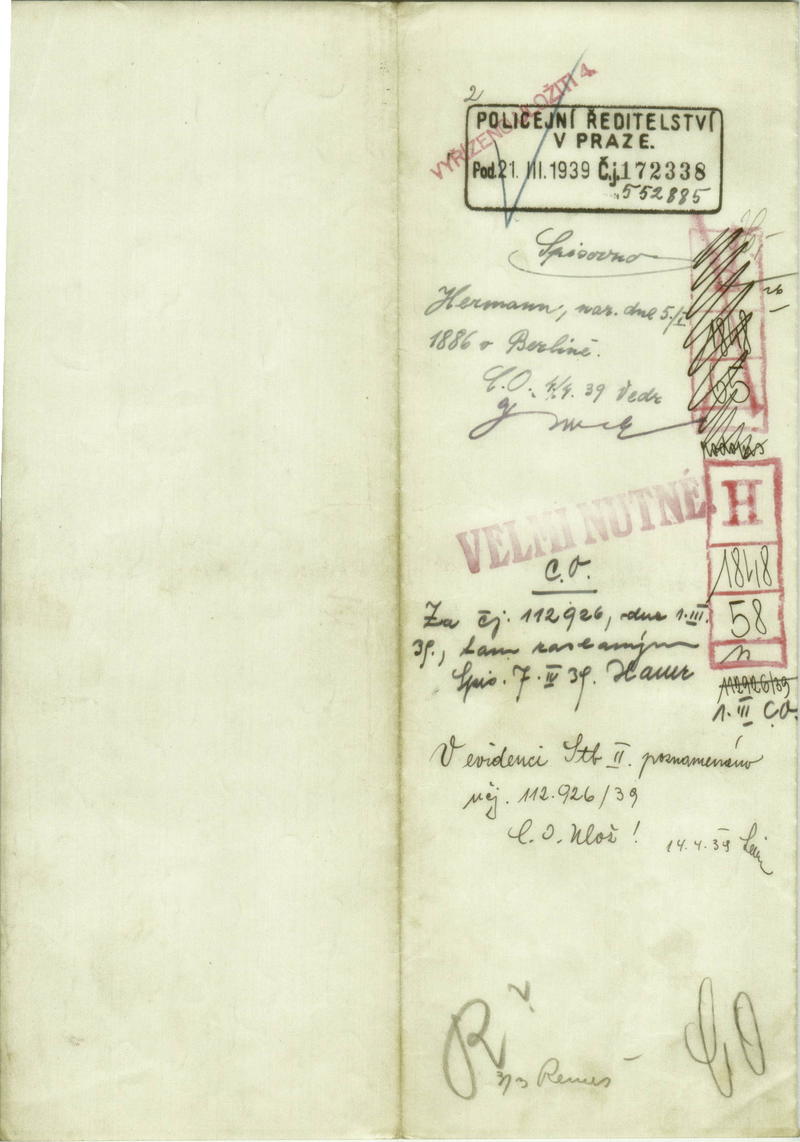 2
VYŘÍZENO ULOŽITI 4.
POLICEJNÍ ŘEDITELSTVÍ
V PRAZE.
Pod. 21. III. 1939 Č.j. 172338
552885
Spisovna
Hermann, nar. dne 5./I.
1886 v Berlíně.
C.O. 4/4. 39
1848
65
VELMI NUTNÉ.
H
1848
58
n
C.O.
Za čj. 112926, dne 1.III.
39., tam zaslaným
Spis. 7. IV 39. Hauer
112926/39
1. III C.O.
V evidenci Stb II. poznamenáno
v čj. 112.926/39
C. O. Ulož!
14.4.39
R
2
3/3 Remeš
CO